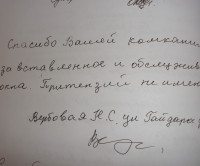 Спасибо Вашей компани
за вставленное и обслужив
окна. Притензий не имею
Вербовая Н.С. ул Гайдара